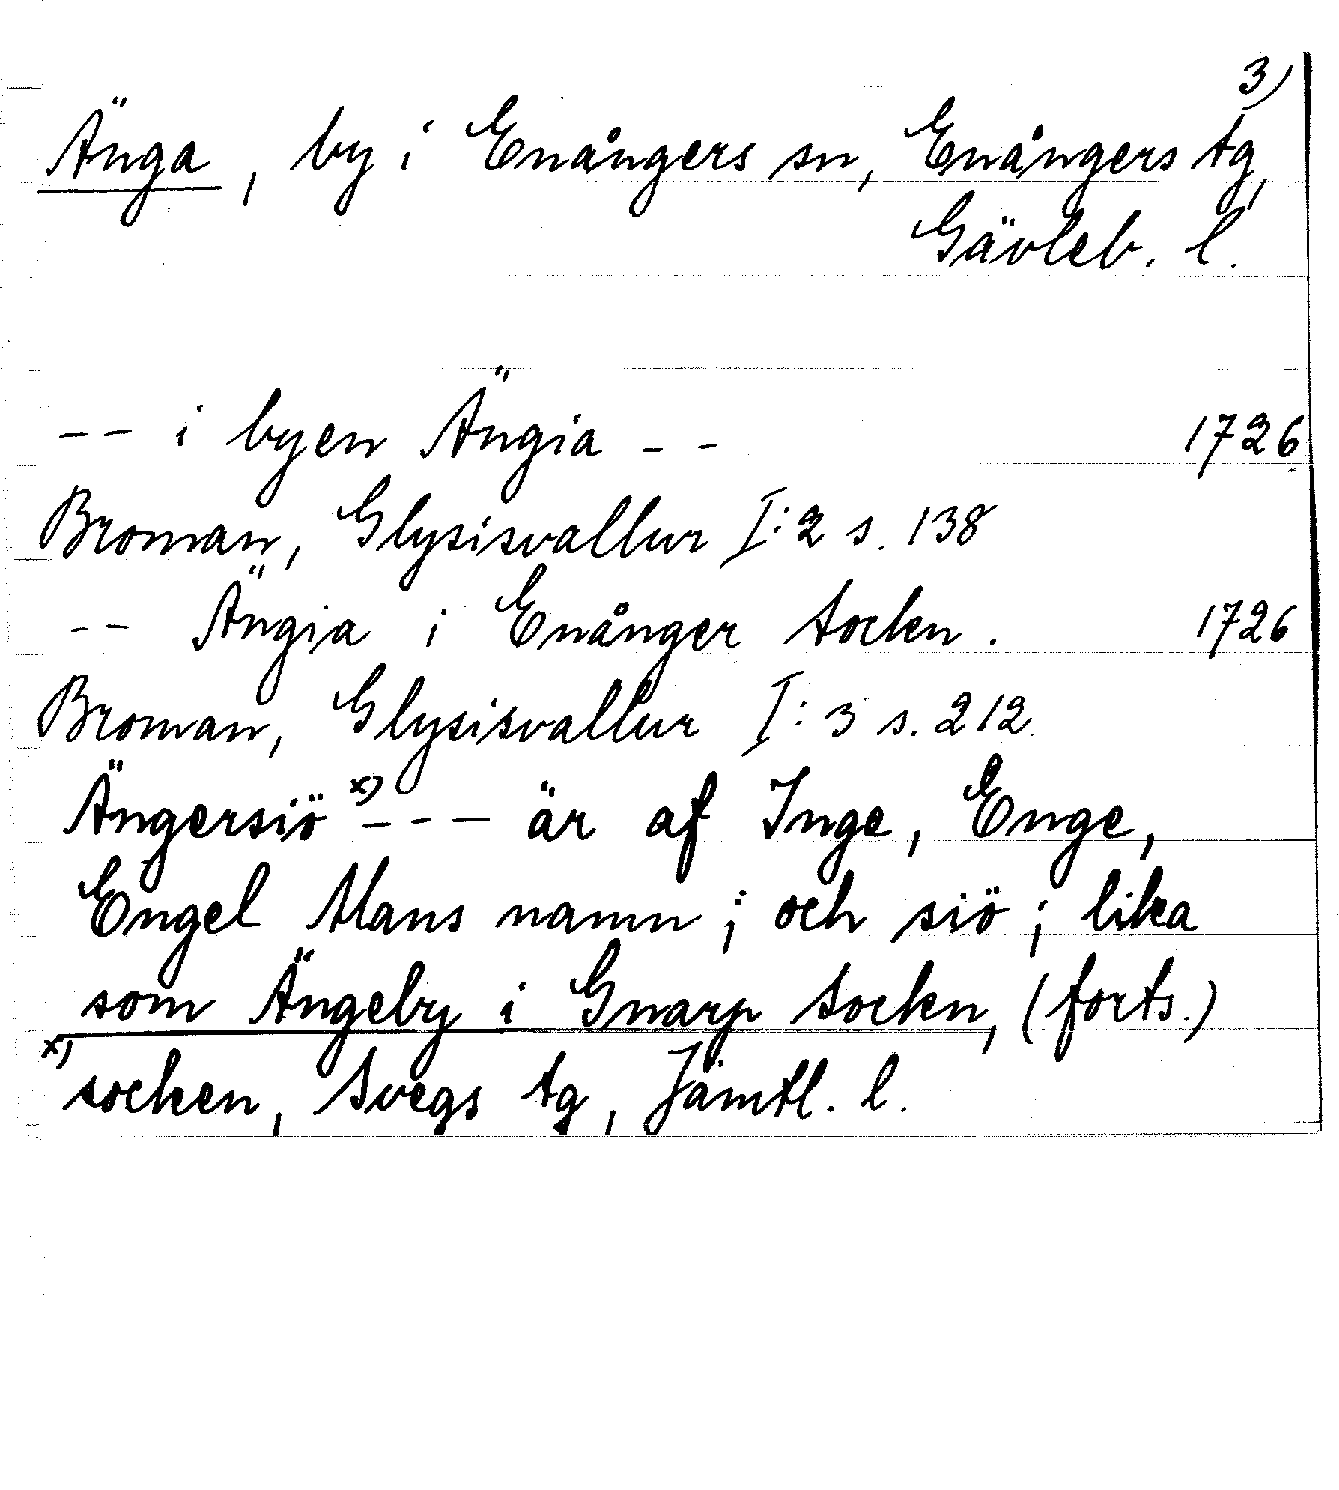 3)
Änga, by i Enångers sn, Enångers tg,
Gävleb. l.
-- i byen Ängia -- 1726
Broman, Glysisvallur I:2 s. 138
-- Ängia i Enånger Socken. 1726
Broman, Glysisvallur I:3 s. 212.
Ängersiö x) --- är af Inge, Enge,
Engel Mans namn; och siö; lika
som Ängeby i Gnarp Socken, (forts.)
x) socken, Svegs tg, Jämtl. l.